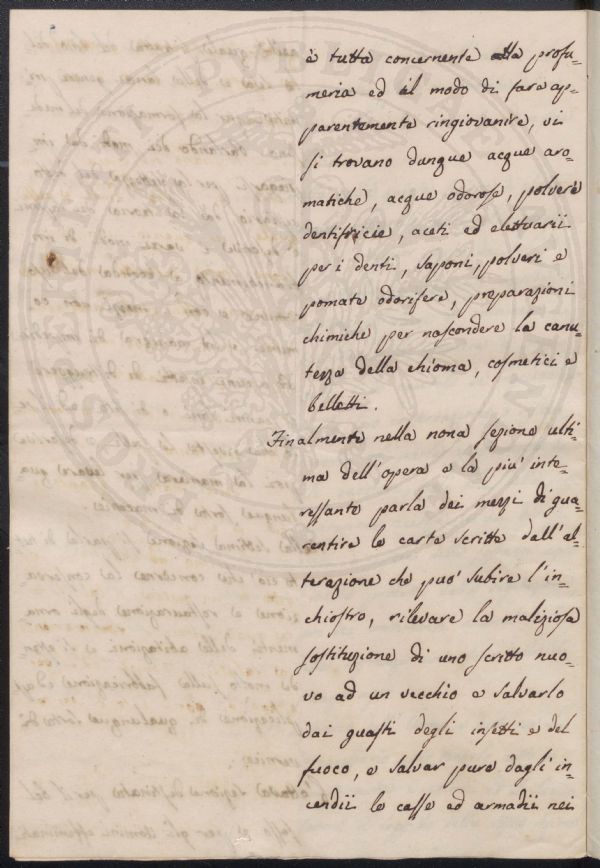 è tutta concernente alla profu-
meria ed il modo di fare ap-
parentemente ringiovanire, vi
si trovano dunque acque aro-
matiche, acque odorose, polveri
dentifricie, aceti ed elettuarii
per i denti, saponi, polveri e
pomate odorifere, preparazioni
chimiche per nascondere la canu-
tezza della chioma, cosmetici e
belletti.
Finalmente nella nona sezione ulti-
ma dell'opera e la piu' inte-
ressante parla dei mezzi di gua-
rentire le carte scritte dall'al-
terazione che puo' subire l'in-
chiostro, rilevare la maliziosa
sostituzione di uno scritto nuo-
vo ad un vecchio e salvarlo
dai guasti degli insetti e del
fuoco, e salvar pure dagl'in-
cendii le casse ed armadii nei